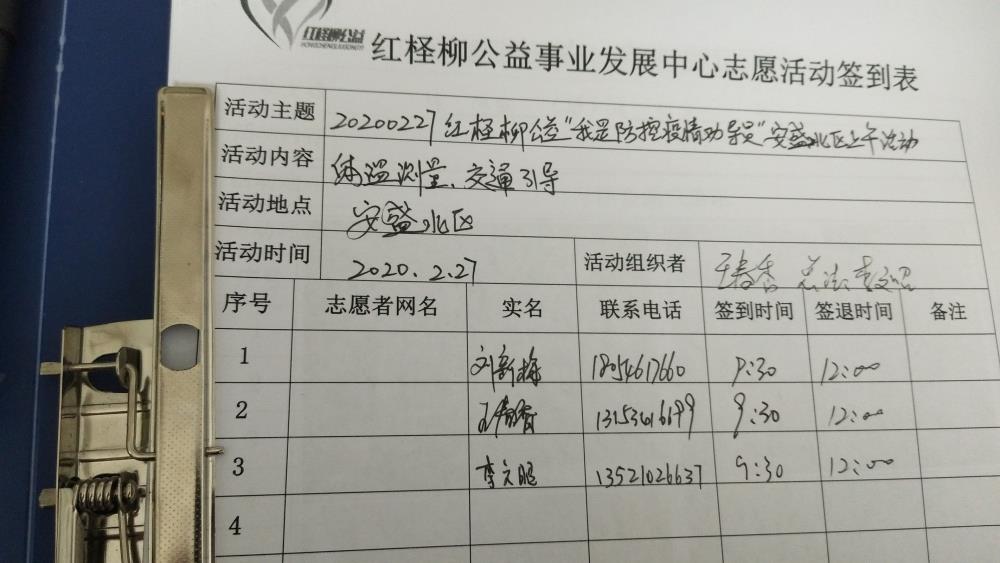 红柽柳公益
HONGCHENGLIUGONGYI
红柽柳公益事业发展中心志愿活动签到表
活动主题 20200227红柽柳公益“我是防控疫情劝导员”安盛北区上午活动
活动内容 体温测量、交通引导
活动地点 安盛北区
活动时间 2020.2.27 活动组织者
序号 志愿者网名 实名 联系电话 签到时间 签退时间 备注
1 刘新梅 18054617660 9:30 12:00
2 13153616699 9:30 12:00
3 李文昭 13521026637 9:30 12:00
4